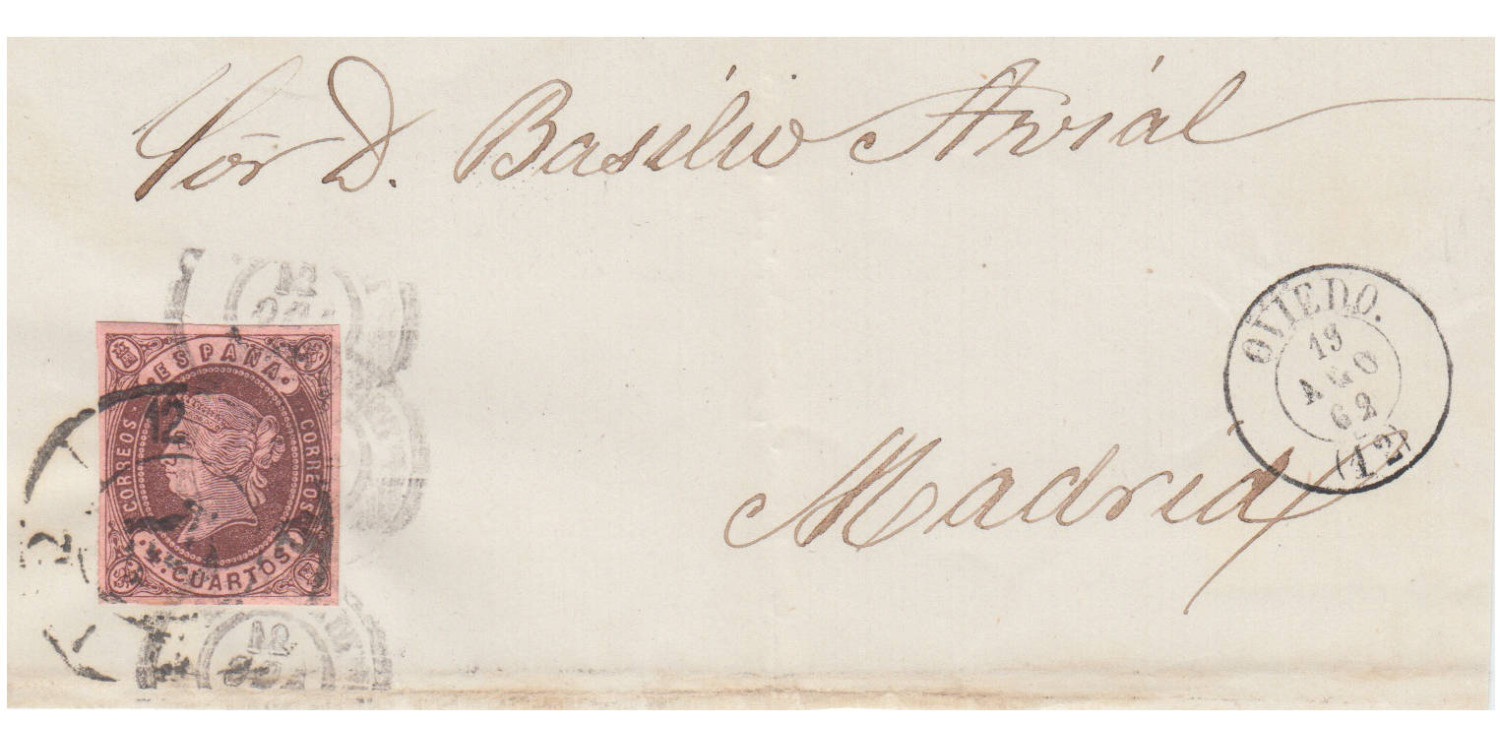 Sor D. Basilio Avial
OVIEDO.
19
AGO
62
(12)
ESPAÑA
CORREOS
CORREOS
12
4. CUARTOS
Madrid